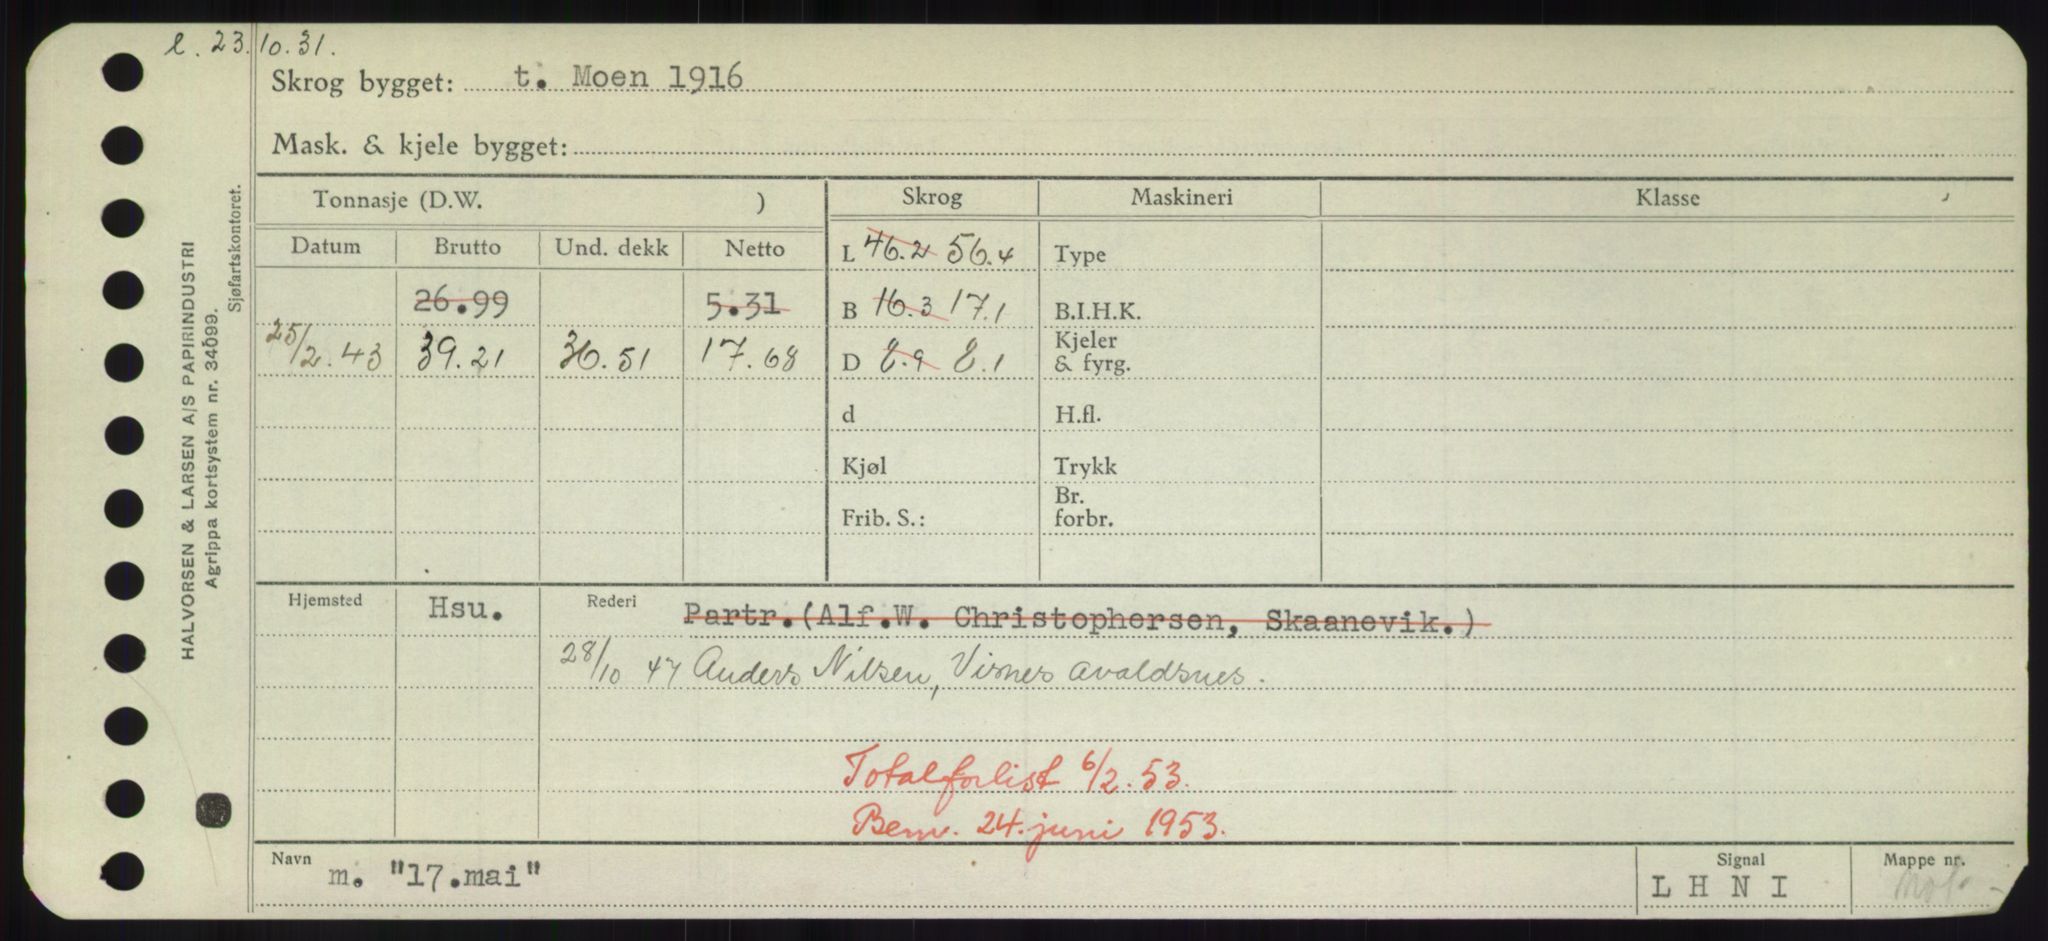 l. 23.10.31.
Skrog bygget: t. Moen 1916
Mask. & kjele bygget:
Tonnasje (D.W. ) Skrog Maskineri Klasse
Datum Brutto Und. dekk Netto L 46.2 56.4 Type
26.99 5.31 B 16.3 17.1 B.I.H.K.
25/2.43 39.21 36.51 17.68 D 8.9 8.1 Kjeler & fyrg.
d H.fl.
Kjøl Trykk
Frib. S.: Br. forbr.
Hjemsted Hsu. Rederi Partr.(Alf.W. Christophersen, Skaanevik.)
28/10 47 Anders Nilsen, Visnes Avaldsnes.
Totalforlist 6/2.53.
Bem. 24. juni 1953.
Navn m. "17.mai" Signal L H N I Mappe nr.
HALVORSEN & LARSEN A/S PAPIRINDUSTRI
Agrippa kortsystem nr. 34099.
Sjøfartskontoret.